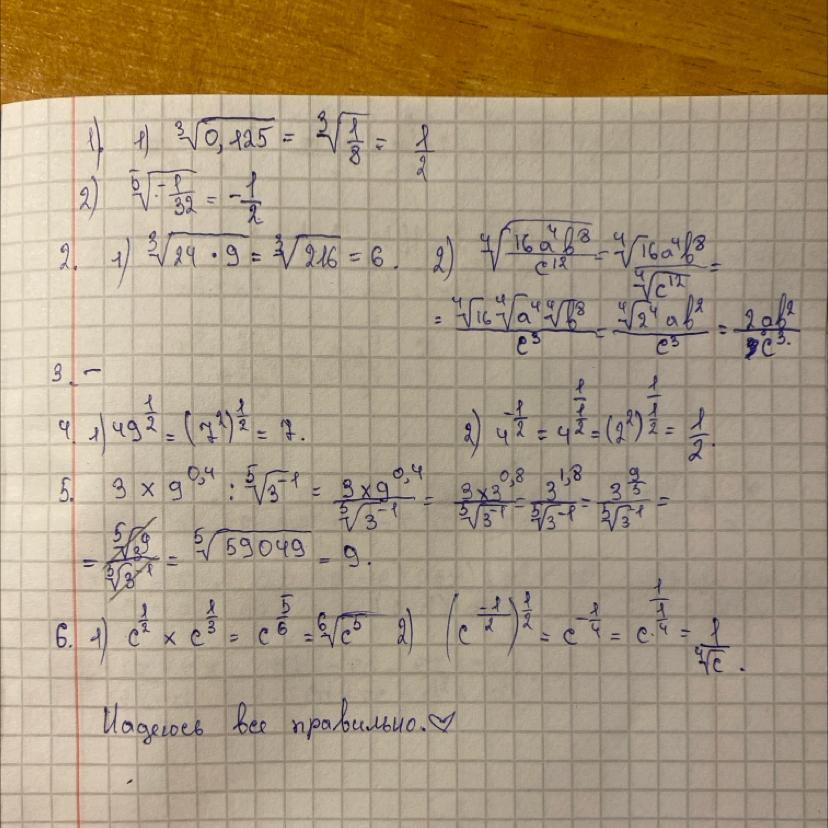 1). 1) ∛0,125 = ∛(1/8) = 1/2
2) ⁵√(-1/32) = -1/2
2. 1) ∛(24 · 9) = ∛216 = 6. 2) ⁴√(16a⁴b⁸/c¹²) = ⁴√(16a⁴b⁸)/⁴√(c¹²) =
= ⁴√16 ⁴√a⁴ ⁴√b⁸/c³ = ⁴√2⁴ ab²/c³ = 2ab²/c³.
3. –
4. 1) 49^(1/2) = (7²)^(1/2) = 7. 2) 4^(-1/2) = 4^(1/(1/2)) = (2²)^(1/(1/2)) = 1/2.
5. 3 × 9^(0,4) : ⁵√(3⁻¹) = (3 × 9^(0,4))/⁵√(3⁻¹) = (3 × 3^(0,8))/⁵√(3⁻¹) = 3^(1,8)/⁵√(3⁻¹) = 3^(9/5)/⁵√(3⁻¹) =
= ⁵√(3⁹)/⁵√(3⁻¹) = ⁵√59049 = 9.
6. 1) c^(1/2) × c^(1/3) = c^(5/6) = ⁶√(c⁵) 2) (c^(-1/2))^(1/2) = c^(-1/4) = c^(1/(1/4)) = 1/⁴√c.
Надеюсь все правильно. ♡